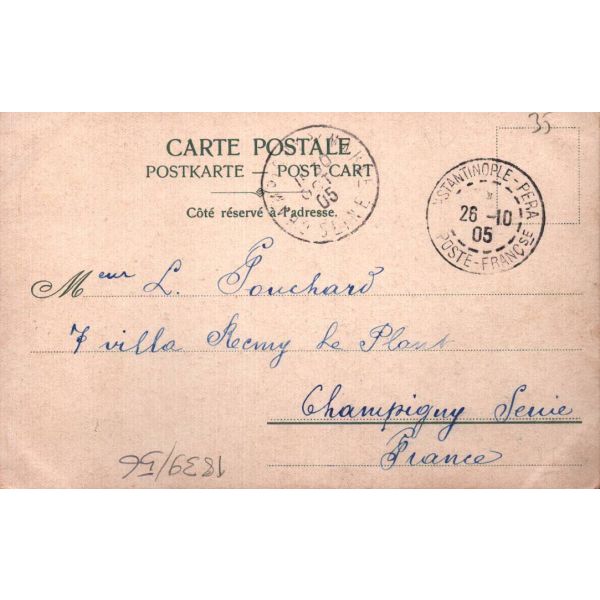 35
CARTE POSTALE
POSTKARTE — POST CART
Côté réservé à l'adresse.
CONSTANTINOPLE-PERA
26 -10
05
POSTE-FRANÇSE
05
SEINE
Meur L. Pouchard
7 villa Remy le Plant
Champigny Seine
France
1839/56